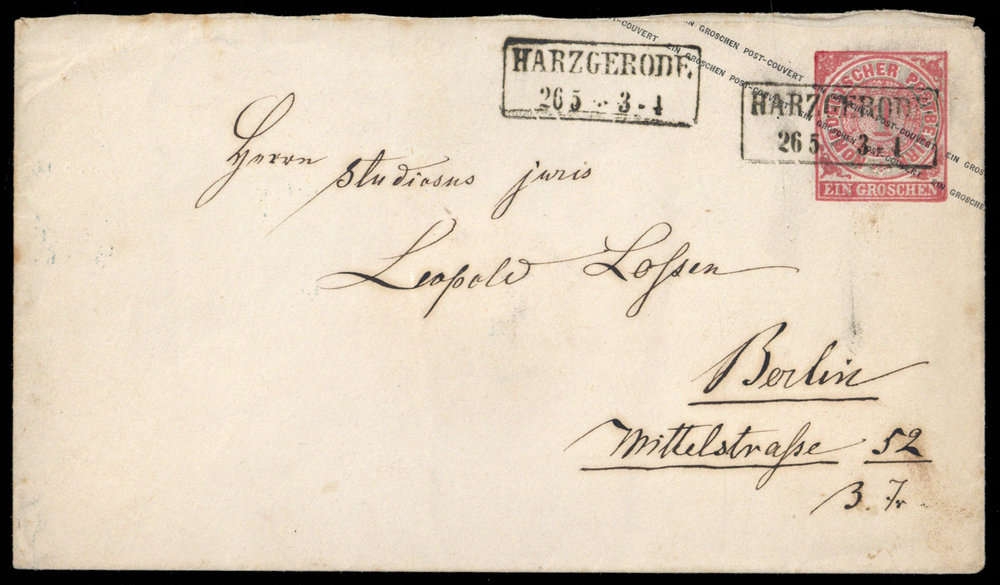 EIN GROSCHEN POST-COUVERT EIN GROSCHEN POST-COUVERT EIN GROSCHEN
EIN GROSCHEN POST-COUVERT EIN GROSCHEN POST-COUVERT EIN GROSCHEN
HARZGERODE
26 5 3-4
HARZGERODE
26 5 3-4
NORDDEUTSCHER POSTBEZIRK
EIN GROSCHEN
Herrn
Studiosus juris
Leopold Lossen
Berlin
Mittelstraße 52
3. Tr.